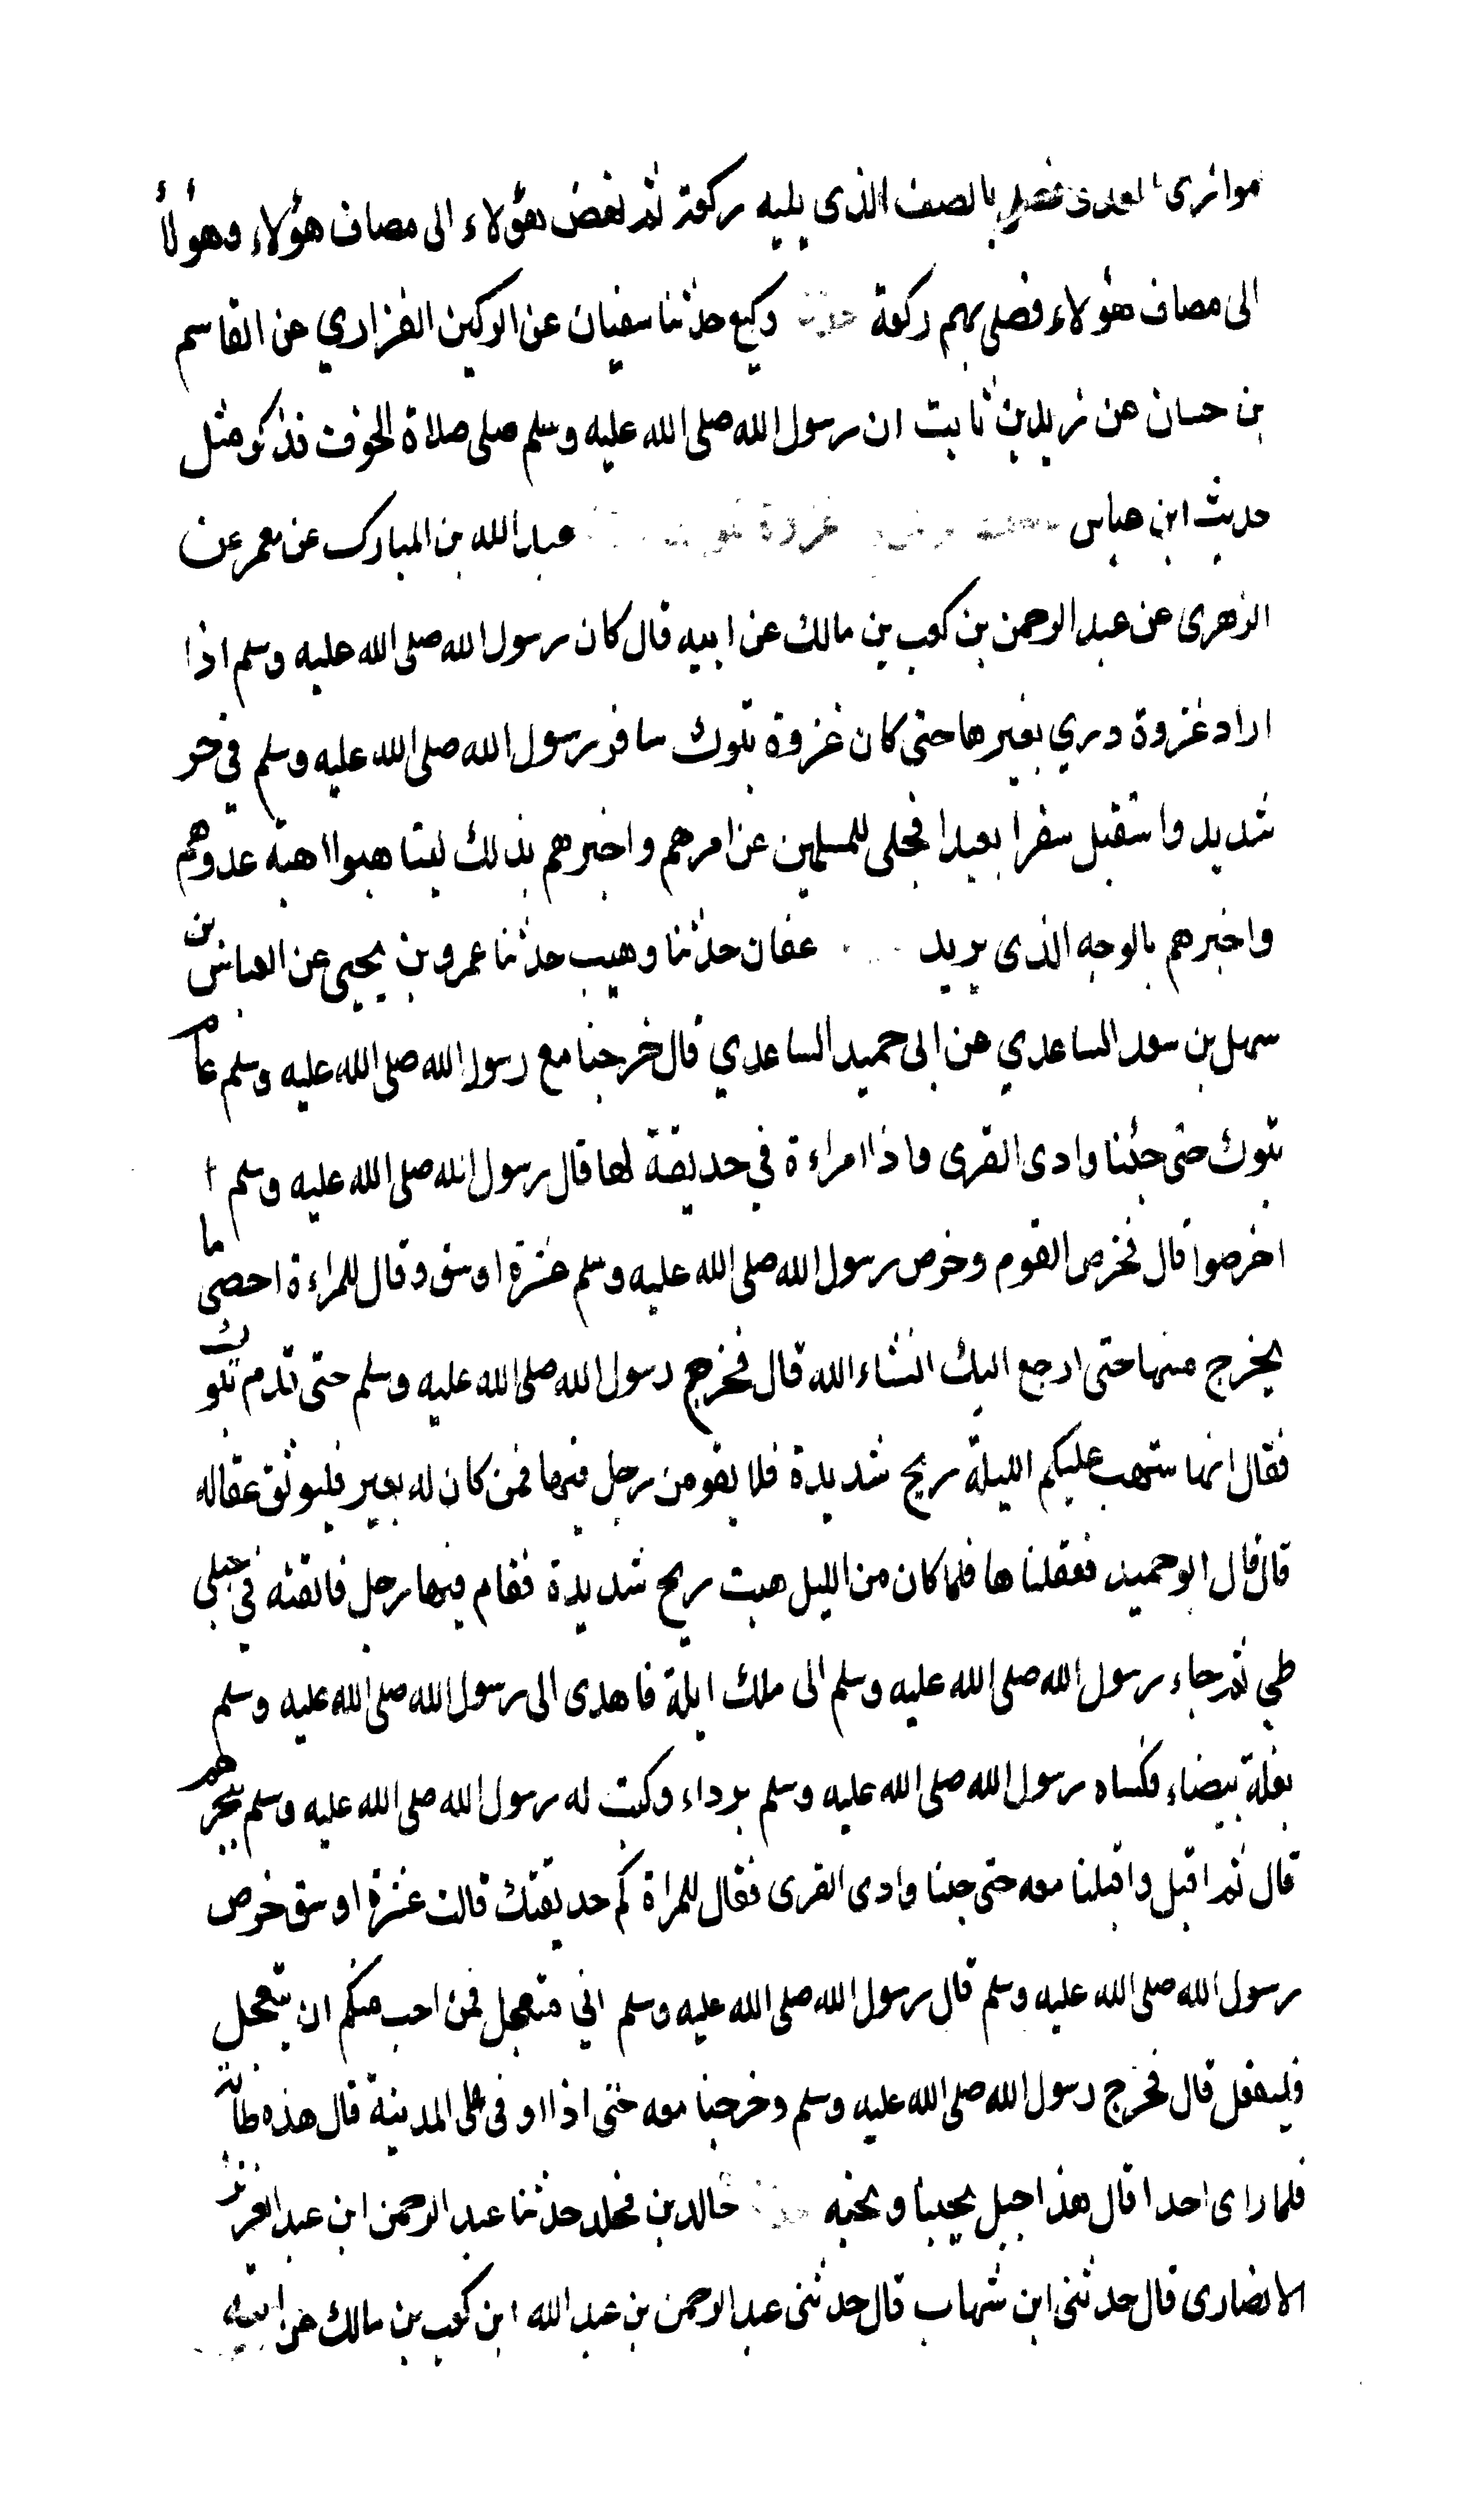 موازي العدو فصلى بالصف الذى يليه ركعة ثم نهض هؤلاء الى مصاف هؤلاء وهؤلاء
الى مصاف هؤلاء فصلى بهم ركعة حدثنا وكيع حدثنا سفيان عن الركين الفزاري عن القاسم
بن حسان عن زيد بن ثابت ان رسول الله صلى الله عليه وسلم صلى صلاة الخوف فذكر مثل
حديث ابن عباس غزوة عبد الله بن المبارك عن معمر عن
الزهرى عن عبد الرحمن بن كعب بن مالك عن ابيه قال كان رسول الله صلى الله عليه وسلم اذا
اراد غزوة ورى بغيرها حتى كان غزوة تبوك سافر رسول الله صلى الله عليه وسلم في حر
شديد واستقبل سفرا بعيدا فجلى للمسلمين عن امرهم واخبرهم بذلك ليتاهبوا اهبة عدوهم
واخبرهم بالوجه الذى يريد عفان حدثنا وهيب حدثنا عمرو بن يحيى عن العباس بن
سهل بن سعد الساعدي عن ابى حميد الساعدي قال خرجنا مع رسول الله صلى الله عليه وسلم عام
تبوك حتى جئنا وادى القرى فاذا امراءة في حديقة لها قال رسول الله صلى الله عليه وسلم ا
اخرصوا قال فخرص القوم وخرص رسول الله صلى الله عليه وسلم عشرة اوسق وقال للمراءة احصى ما
يخرج منها حتى ارجع اليك انشاء الله قال فخرج رسول الله صلى الله عليه وسلم حتى قدم تبوك
فقال انها ستهب عليكم الليلة ريح شديدة فلا يقومن رجل فيها فمن كان له بعير فليوثق عقاله
قال قال ابو حميد فعقلناها فلما كان من الليل هبت ريح شديدة فقام فيها رجل فالقته في جبلي
طي ثم جاء رسول الله صلى الله عليه وسلم الى ملك ايلة فاهدى الى رسول الله صلى الله عليه وسلم
بغلة بيضاء فكساه رسول الله صلى الله عليه وسلم برداء وكتب له رسول الله صلى الله عليه وسلم ببحرهم
قال ثم اقبل واقبلنا معه حتى جئنا وادى القرى فقال للمراة كم حديقتك قالت عشرة اوسق خرص
رسول الله صلى الله عليه وسلم قال رسول الله صلى الله عليه وسلم اني متعجل فمن احب منكم ان يتعجل
فليفعل قال فخرج رسول الله صلى الله عليه وسلم وخرجنا معه حتى اذا اوفى على المدينة قال هذه طابة
فلما راى احدا قال هذا جبل يحبنا ونحبه حدثنا خالد بن مخلد حدثنا عبد الرحمن ابن عبد العزيز
الانصارى قال حدثنى ابن شهاب قال حدثنى عبد الرحمن بن عبد الله ابن كعب بن مالك عن ابيه